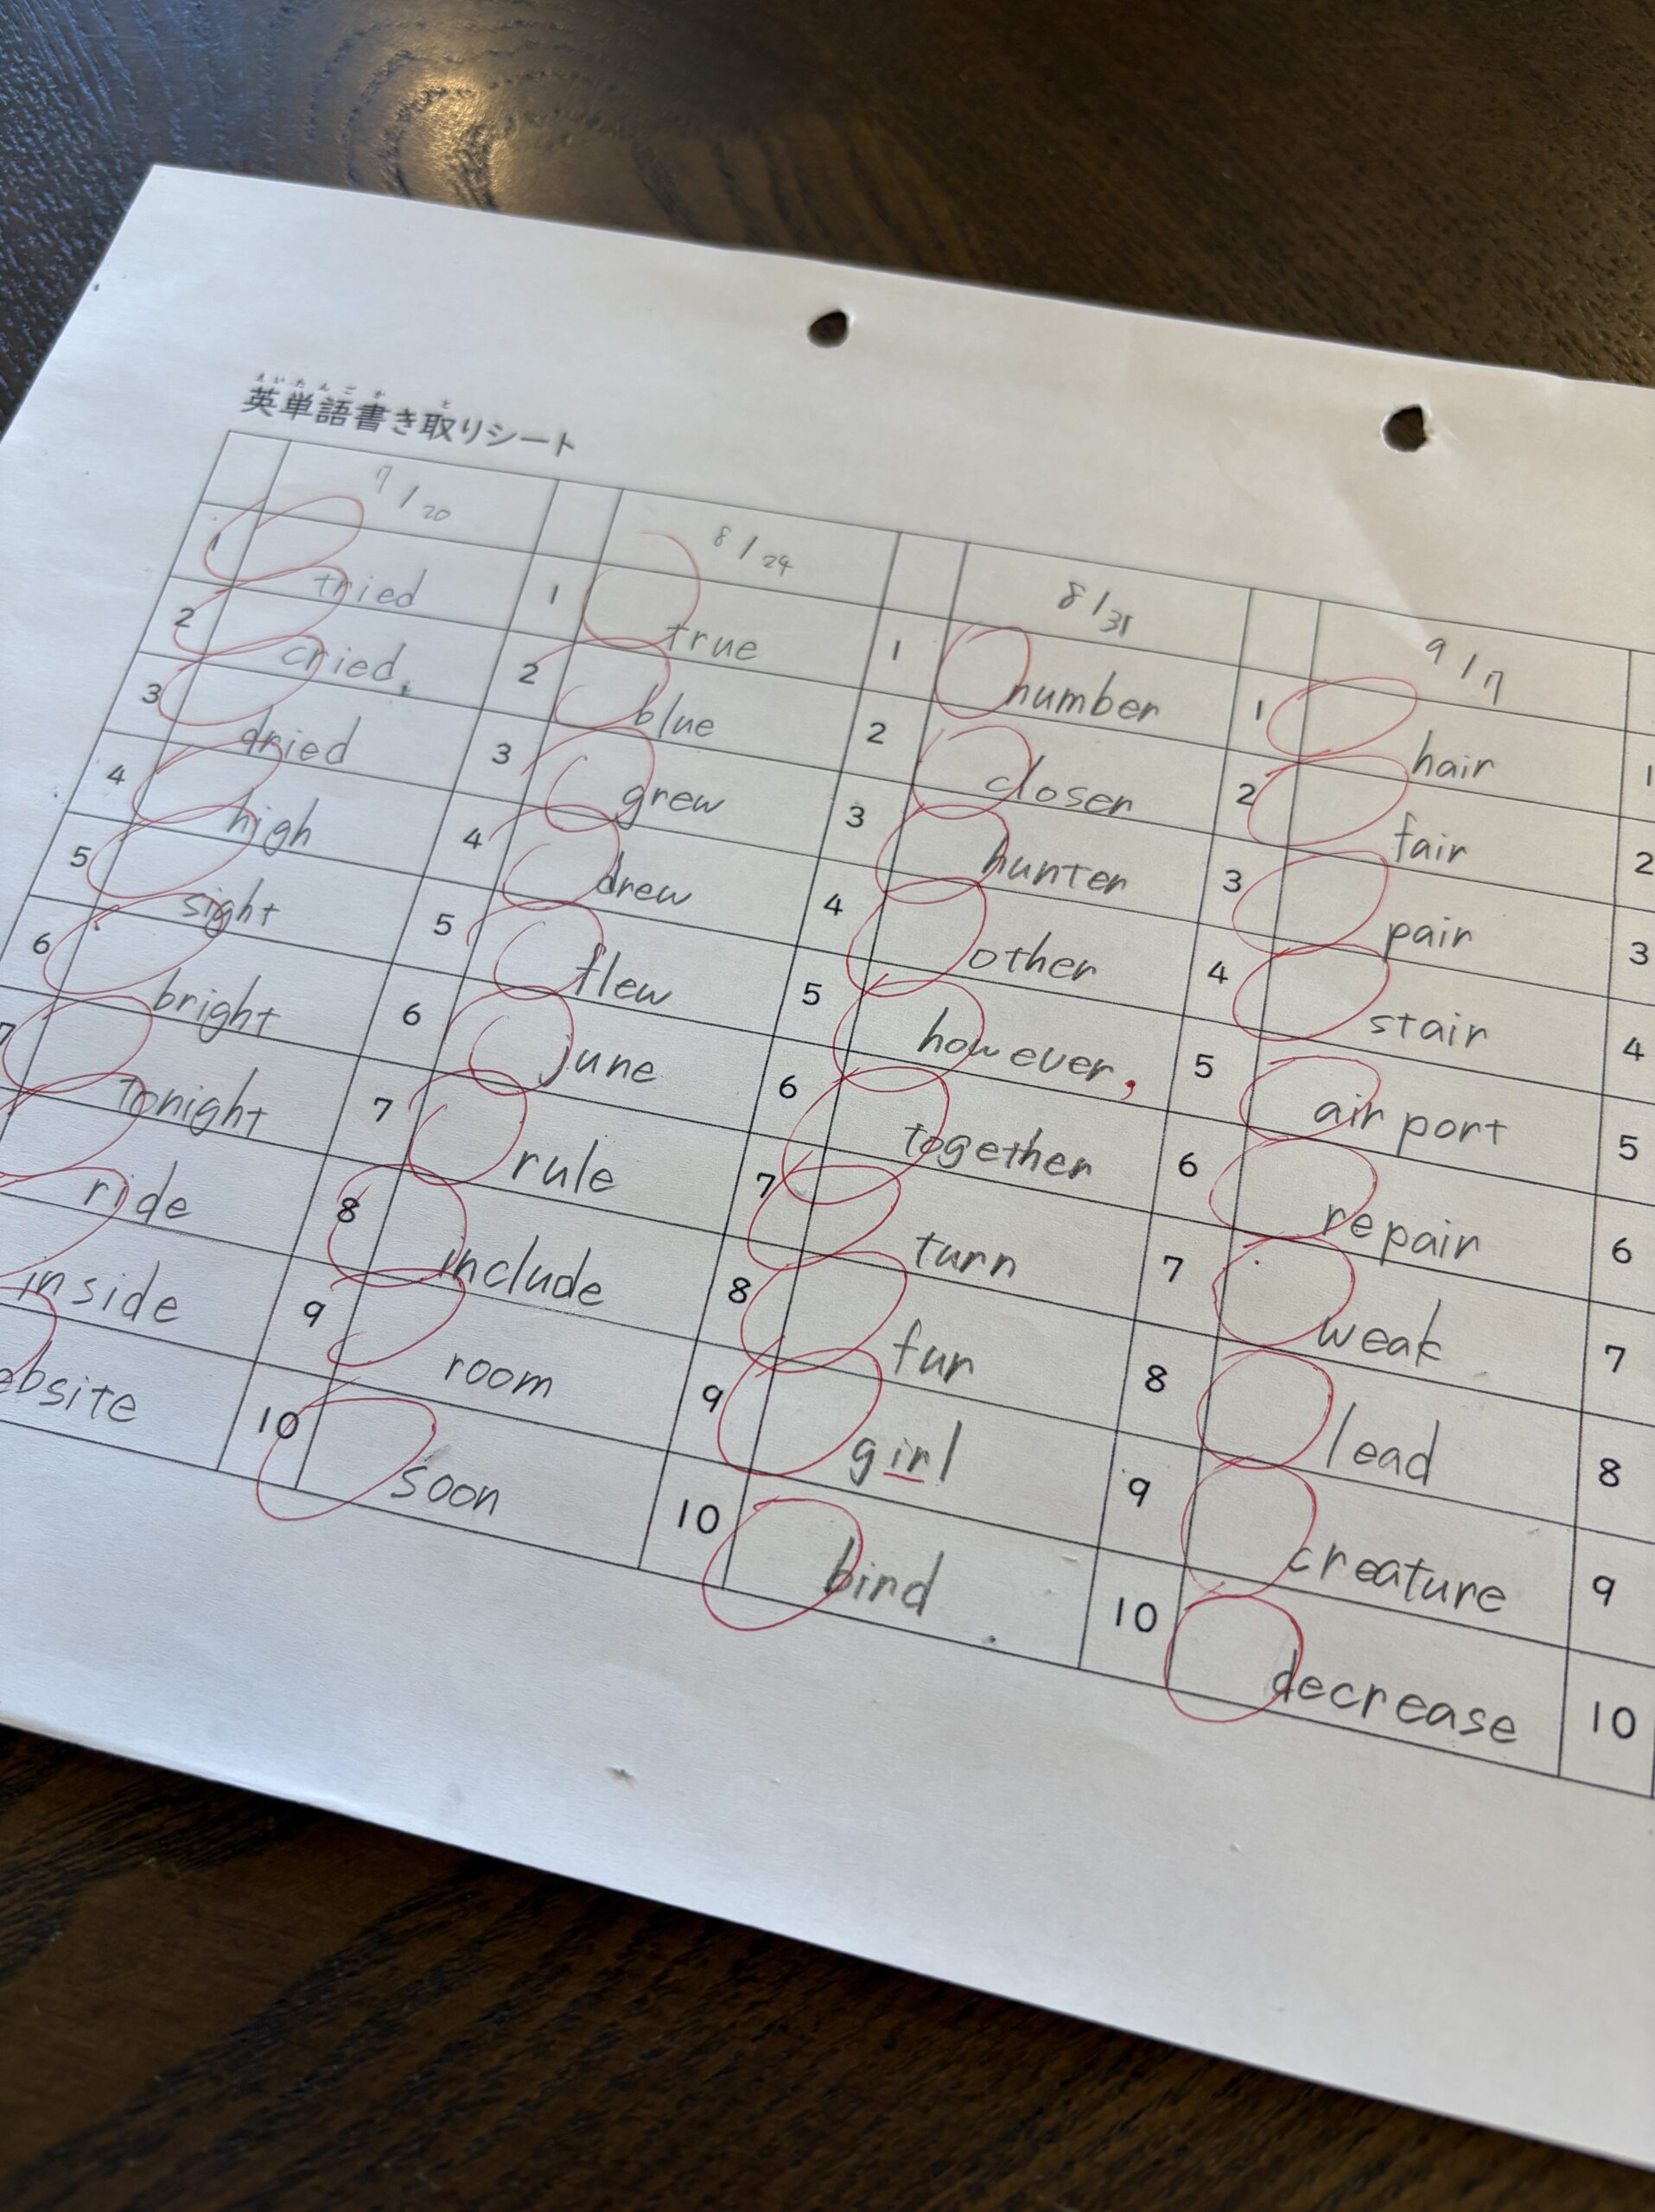 えいたんご か と
英単語書き取りシート
7/20
1 tried
2 cried,
3 dried
4 high
5 sight
6 bright
7 tonight
ride
inside
ebsite
8/24
1 true
2 blue
3 grew
4 drew
5 flew
6 june
7 rule
8 include
9 room
10 soon
8/31
1 number
2 closer
3 hunter
4 other
5 however,
6 together
7 turn
8 fur
9 girl
10 bird
9/7
1 hair
2 fair
3 pair
4 stair
5 airport
6 repair
7 weak
8 lead
9 creature
10 decrease
1
2
3
4
5
6
7
8
9
10